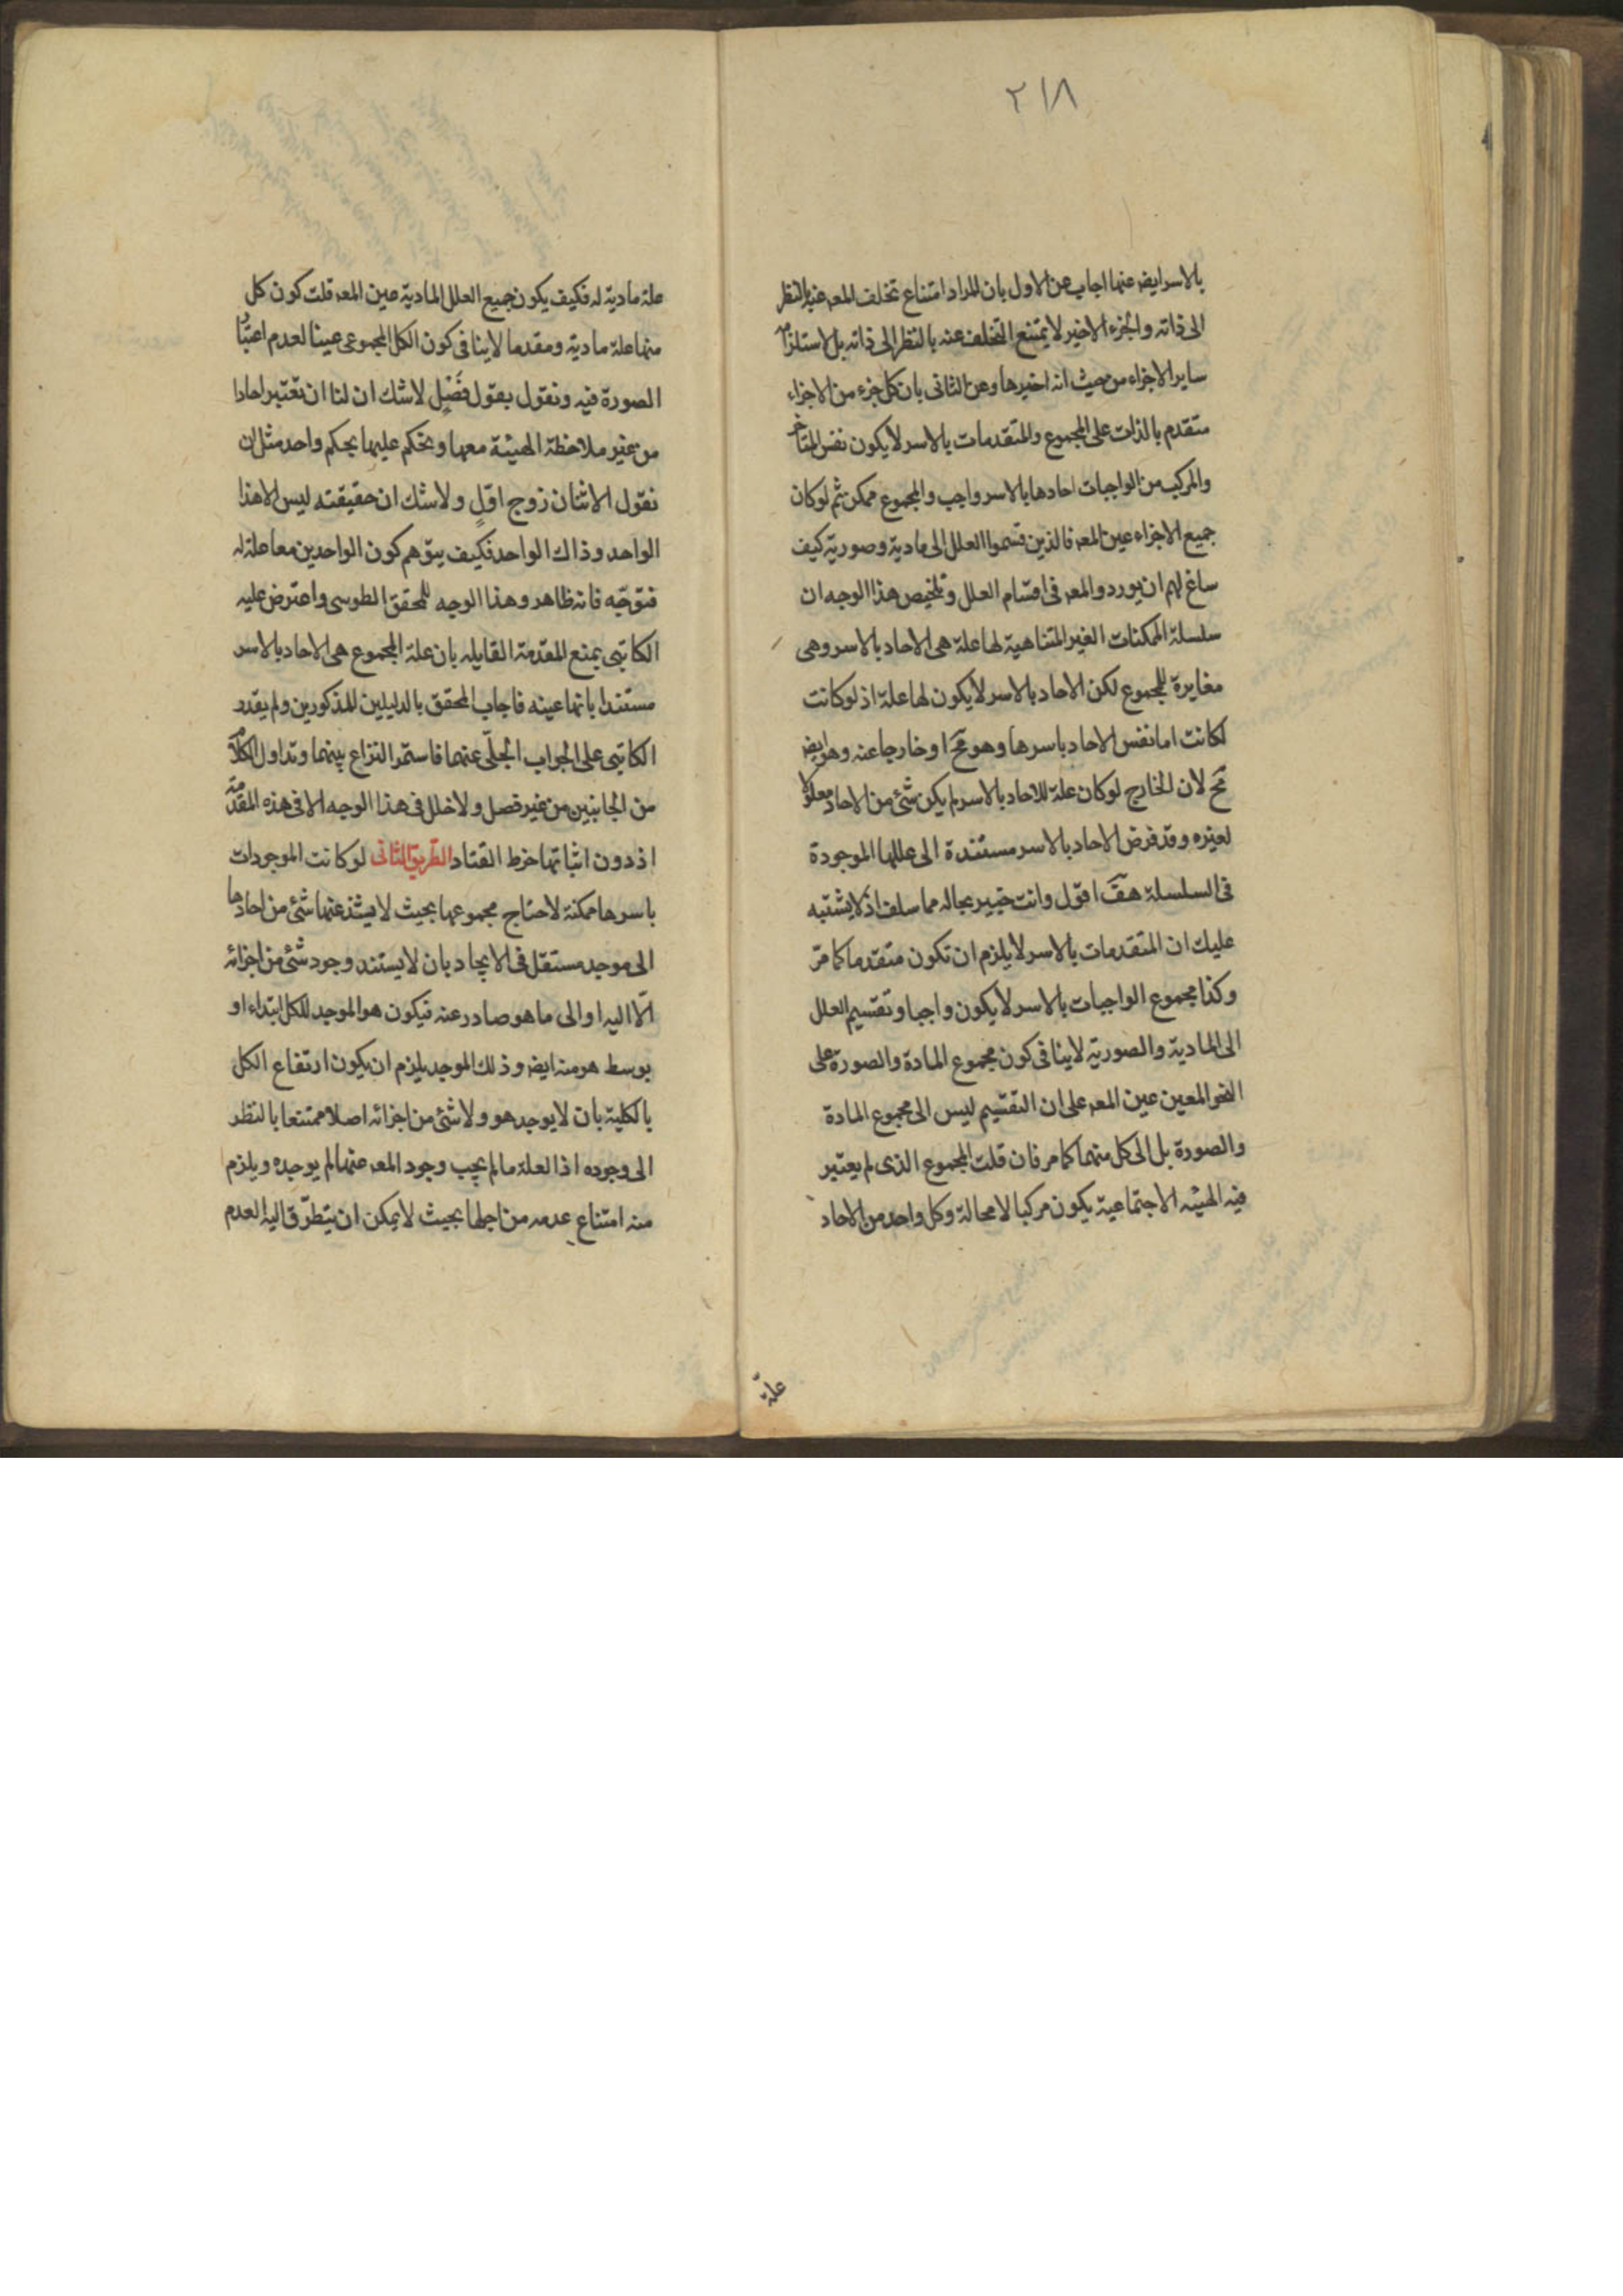 ٢١٨
بالاسر ايضه عنها اجاب عن الاول بان المراد امتناع تخلف المعه عنه بالنظر
الى ذاته والجزء الاخير لا يمتنع التخلف عنه بالنظر الى ذاته بل لاستلزامه
ساير الاجزاء من حيث انه اخيرها وعن الثانى بان كل جزء من الاجزاء
متقدم بالذات على المجموع والمتقدمات بالاسر لا يكون نفس المتاخر
والمركب من الواجبات احادها بالاسر واجب والمجموع ممكن ثم لو كان
جميع الاجزاء عين المعه فالذين قسموا العلل الى مادية وصورية كيف
ساغ لهم ان يوردوا المعه فى اقسام العلل وتلخيص هذا الوجه ان
سلسلة الممكنات الغير المتناهية لها علة هى الاحاد بالاسر وهى
مغايرة للمجموع لكن الاحاد بالاسر لا يكون لها علة اذ لو كانت
لكانت اما نفس الاحاد باسرها وهو مح او خارجا عنه وهو ايضه
مح لان الخارج لو كان علة للاحاد بالاسر لم يكن شئ من الاحاد معلولا
لغيره وقد فرض الاحاد بالاسر مستندة الى عللها الموجودة
فى السلسلة هف اقول وانت خبير بحاله مما سلف اذ لا يشتبه
عليك ان المتقدمات بالاسر لا يلزم ان تكون متقدما كما مر
وكذا مجموع الواجبات بالاسر لا يكون واجبا وتقسيم العلل
الى المادية والصورية لا ينافى كون مجموع المادة والصورة على
النحو المعين عين المعه على ان التقسيم ليس الى مجموع المادة
والصورة بل الى كل منهما كما مر فان قلت المجموع الذى لم يعتبر
فيه الهيئه الاجتماعية يكون مركبا لا محالة وكل واحد من الاحاد
علة
علة مادية له فكيف يكون جميع العلل المادية عين المعه قلت كون كل
منها علة مادية ومقدما لا ينافى كون الكل المجموعى عينا لعدم اعتبار
الصورة فيه ونقول بقول فَصْلٍ لا شك ان لنا ان نعتبر احادا
من غير ملاحظة الهيئة معها ونحكم عليها بحكم واحد مثل ان
نقول الاثنان زوج اول ولا شك ان حقيقته ليس الا هذا
الواحد وذاك الواحد فكيف يتوهم كون الواحدين معا علة له
فتوجّه فانه ظاهر وهذا الوجه للمحقق الطوسى واعترض عليه
الكاتبى بمنع المقدمة القايله بان علة المجموع هى الاحاد بالاسر
مستندا بانها عينه فاجاب المحقق بالدليلين المذكورين ولم يقدر
الكاتبى على الجواب الجلّى عنهما فاستمر النزاع بينهما وتداول الكلام
من الجانبين من غير فصل ولا خلل فى هذا الوجه الا فى هذه المقدمة
اذ دون اثباتها خرط القتاد الطريق الثانى لو كانت الموجودات
باسرها ممكنة لاحتاج مجموعها بحيث لا يشذ عنها شئ من احادها
الى موجد مستقل فى الايجاد بان لا يستند وجود شئ من اجزائه
الّا اليه او الى ما هو صادر عنه فيكون هو الموجد للكل ابتداء او
بوسط هو منه ايضه وذلك الموجد يلزم ان يكون ارتفاع الكل
بالكلية بان لا يوجد هو ولا شئ من اجزائه اصلا ممتنعا بالنظر
الى وجوده اذ العلة ما لم يجب وجود المعه عنها لم يوجده ويلزم
منه امتناع عدمه من اجلها بحيث لا يمكن ان يتطرّق اليه العدم